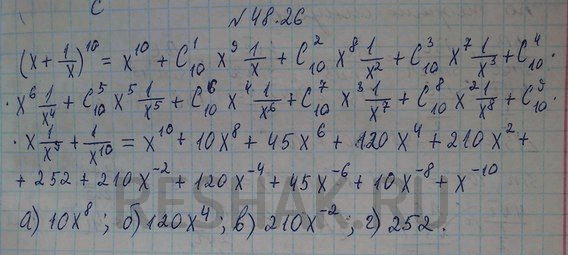 с
№48.26
(x + 1/x)^10 = x^10 + C_10^1 x^9 1/x + C_10^2 x^8 1/x^2 + C_10^3 x^7 1/x^3 + C_10^4 ·
· x^6 1/x^4 + C_10^5 x^5 1/x^5 + C_10^6 x^4 1/x^6 + C_10^7 x^3 1/x^7 + C_10^8 x^2 1/x^8 + C_10^9 ·
· x 1/x^9 + 1/x^10 = x^10 + 10x^8 + 45x^6 + 120x^4 + 210x^2 +
+ 252 + 210x^-2 + 120x^-4 + 45x^-6 + 10x^-8 + x^-10
а) 10x^8 ; б) 120x^4 ; в) 210x^-2 ; г) 252.
RESHAK.RU